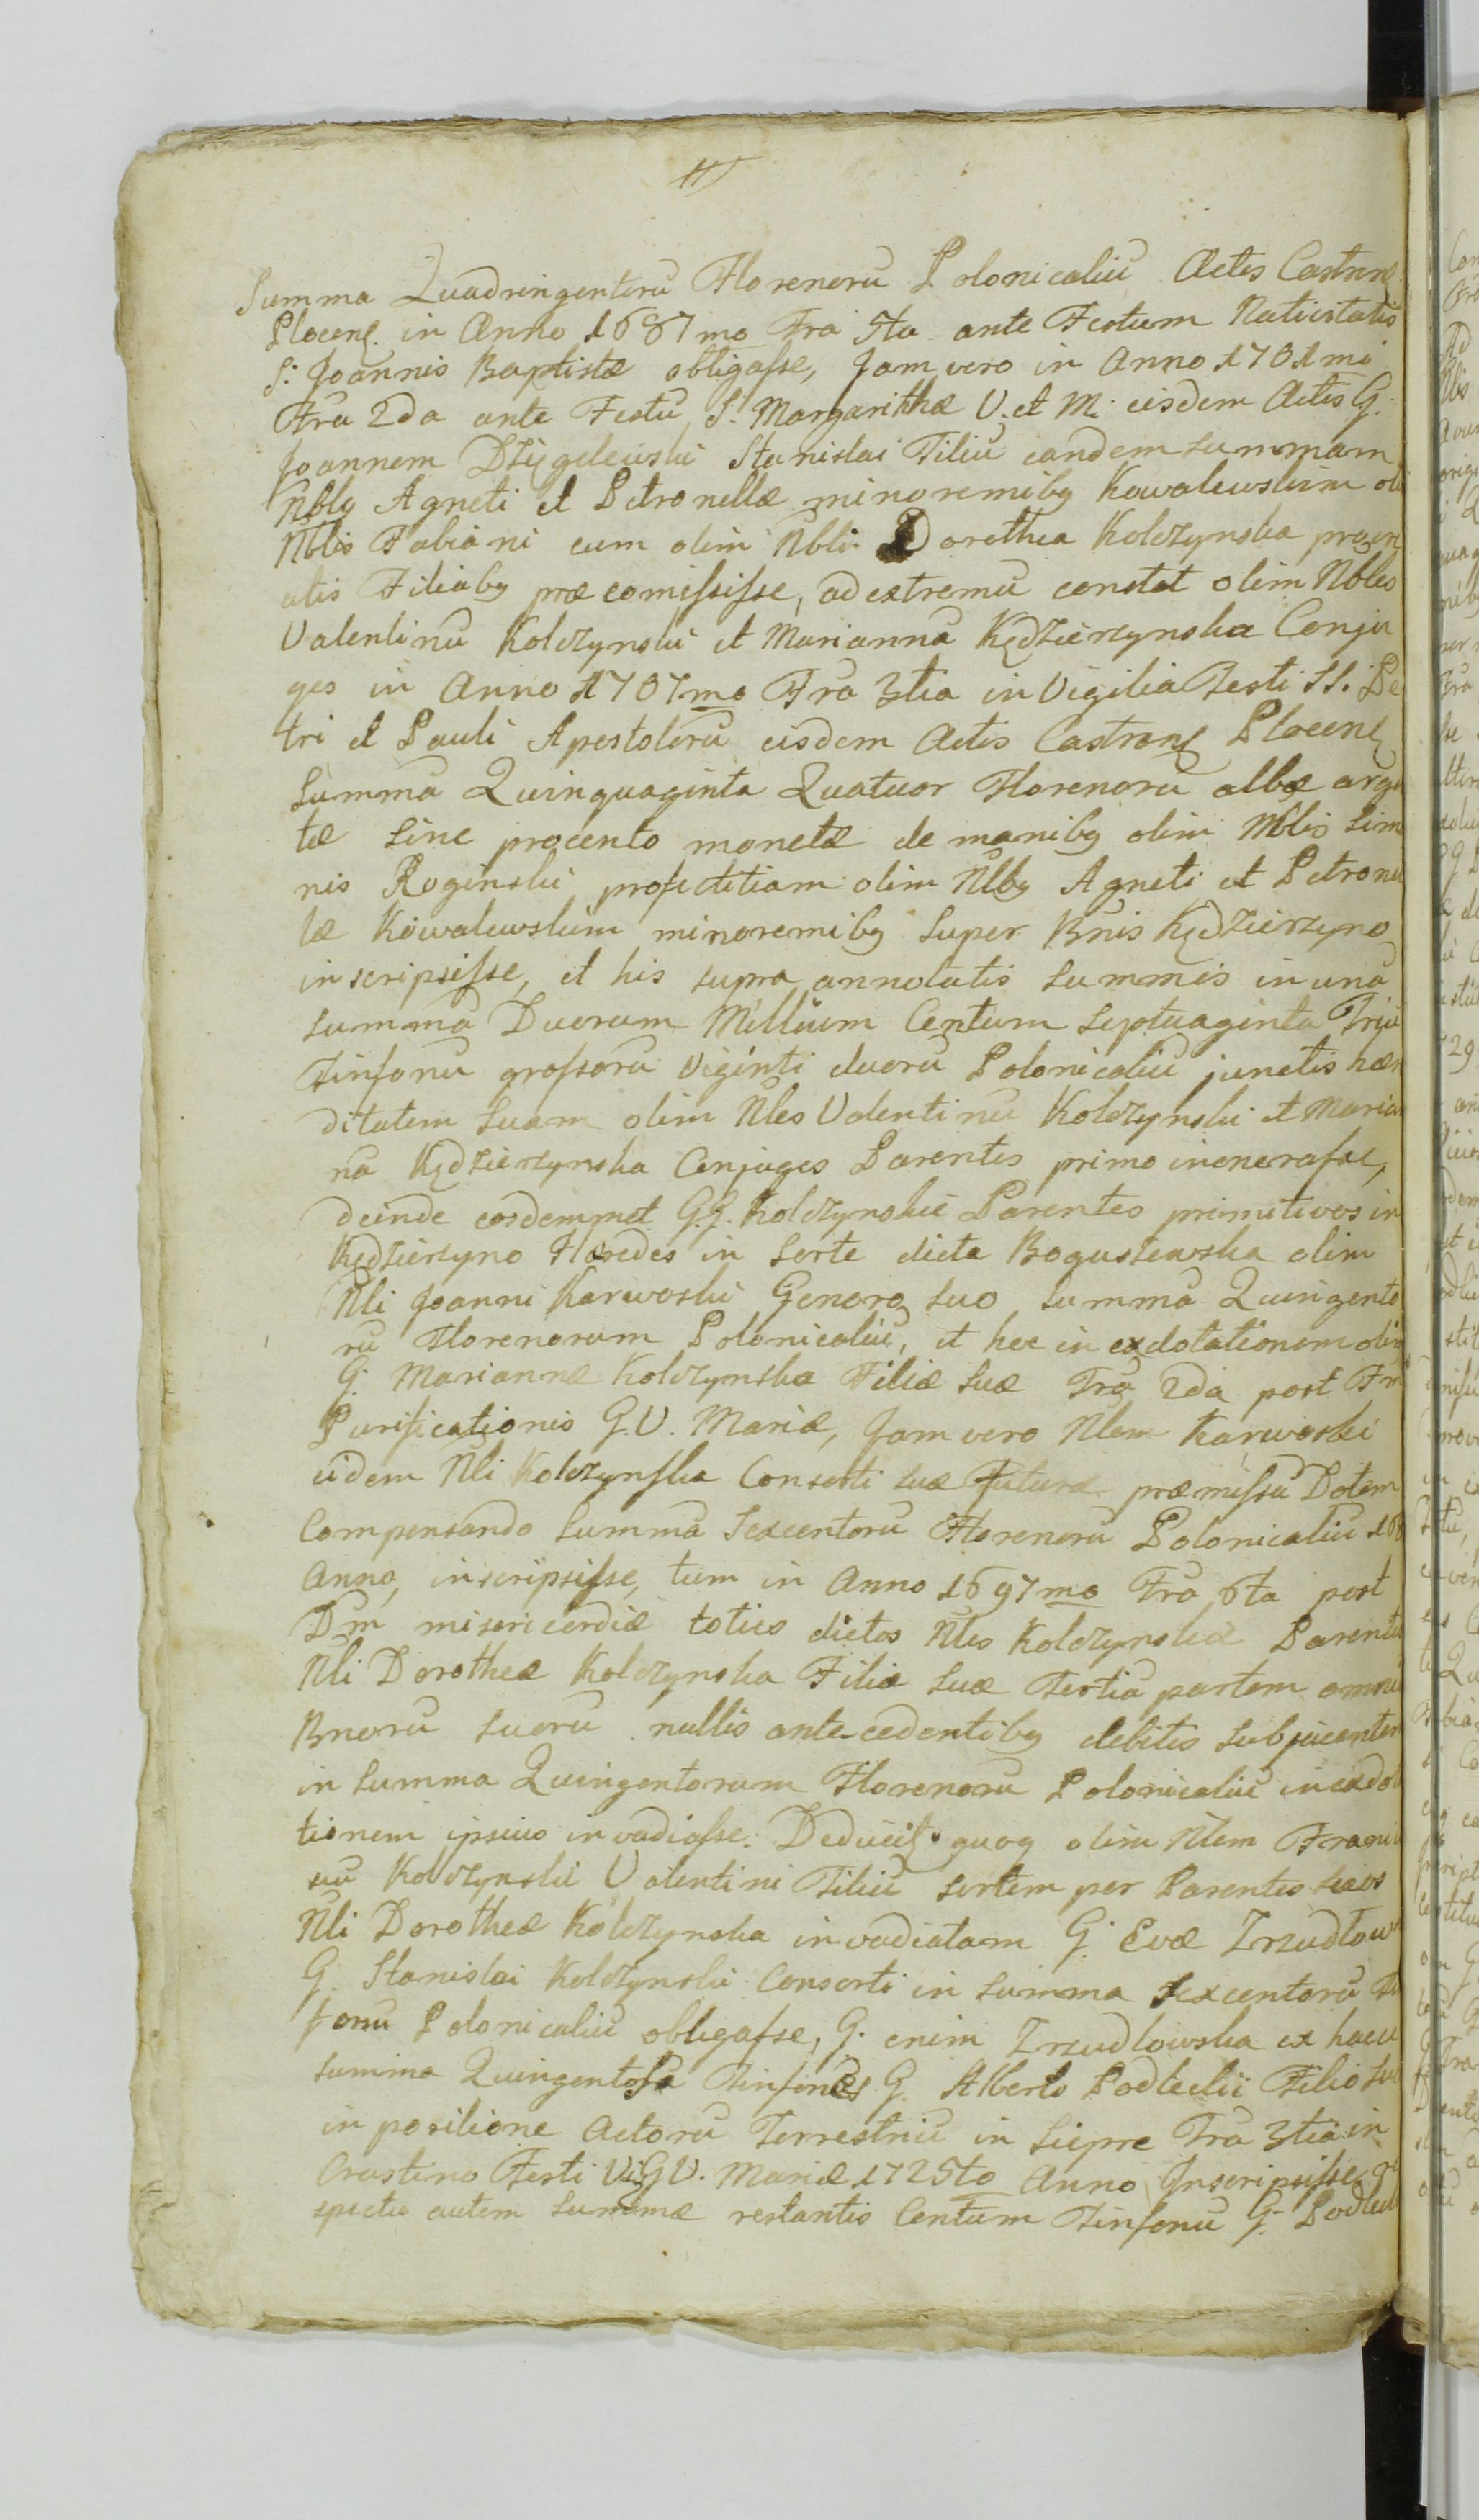 Summa Quadringentorū Florenorū Polonicaliū Actis Castren
Plocens. in Anno 1687mo Fra 5ta ante Festum Nativitatis
S: Joannis Baptistæ obligaſse, Jam vero in Anno 1701mo
Fra 2da ante Festū S: Margarithæ V. et M: eisdem Actis G.
Joannem Dzięgelewski Stanislai Filiū eandem summam
Nblg Agneti et Petronellæ minorennibg Kowalewskim oli
Nblis Fabiani cum olim Nbli Dorothea Kolczynska procre
atis Filiabg præcomiſsiſse, ad extremū constat olim Nbles
Valentinū Kolczynski et Mariannā Kędzierzynska Conju
ges in Anno 1707mo Fra 3tia in Vigilia Festi SS. Pe
tri et Pauli Apostolorū eisdem Actis Castrens Plocens
Summā Quinquaginta Quatuor Florenorū albæ argē
tæ sine procento monetæ de manibg olim Nblis Simo
nis Roginski profectitiam olim Nlbg Agneti et Petronel
læ Kowalewskim minorennibg super Bnis Kędzierzyno
inscripsiſse, et his supra annotatis summis in una
summā Duorum Millium Centum Septuaginta Triū
Tinfonū groſsorū Viginti duorū Polonicaliū junctis hær
ditatem suam olim Nles Valentinū Kolczynski et Marian
na Kędzierzynska Conjuges Parentes primo inoneraſse,
deinde eosdemmet G.G. Kolczynskie Parentes primitivos in
Kędzierzyno Hæredes in sorte dicta Boguszewska olim
Nli Joanni Karwoski Genero suo summā Quingento
rū Florenorum Polonicaliū, et hec in exdotationem olim
G. Mariannæ Kolczynska Filiæ suæ Fra 2da post Fm
Purificationis G.V. Mariæ, Jam vero Nlem Karwoski
eidem Nli Kolczynſka Consorti suæ Futuræ præmiſsā Dotem
Compensando Summā Sexcentorū Florenorū Polonicaliū 168
Anno, inscripsiſse, tum in Anno 1697mo Fra 6ta post
Dm misericordiæ toties dictos Nles Kolczynskie Parentes
Nli Dorotheæ Kolczynska Filiæ suæ Tertiā partem omniū
Bnorū suorū nullis antecedentibg debitis subjacentem
in Summa Quingentorum Florenorū Polonicaliū in exdota
tionem ipsius invadiaſse: Deducit quoq olim Nlem Franci
scū Kolczynski Valentini Filiū sortem per Parentes suos
Nli Dorotheæ Kolczynska invadiatam G. Evæ Zrzudlow
G. Stanislai Kolczynski Consorti in Summa Sexcentorū Ti
fonū Polonicaliū obligaſse, G. enim Zrzudlowska ex hacce
summa Quingentos Tinfones G. Alberto Podlecki Filio suo
in positione Actorū Terrestriū in Siepre Fra 3tia in
Crastino Festi V. G V. Mariæ 1725to Anno Inscripsiſse,
spectu autem summæ restantis Centum Tinfonū G. Podlecki